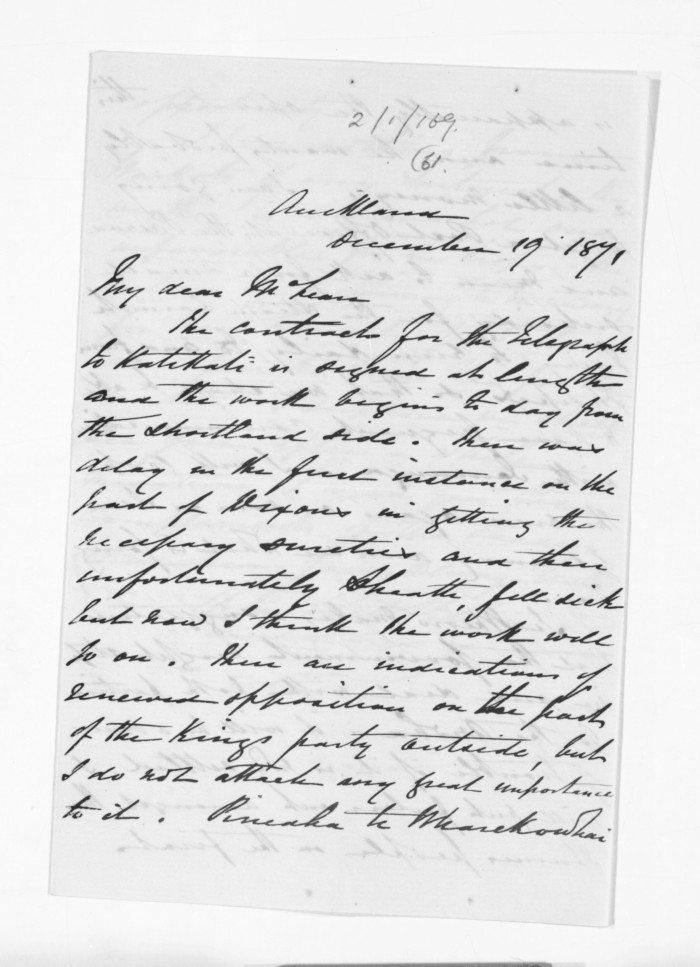 2/1/159.
(61.
Auckland
December 19 1871
My dear McLean
The contract for the Telegraph
to Katikati is signed at length
and the work begins to day from
the Shortland side. There was
delay in the first instance on the
part of Dixons in getting the
necessary sureties and then
unfortunately Sheath, fell sick
but now I think the work will
go on. There are indications of
renewed opposition on the part
of the Kings party outside, but
I do not attach any great importance
to it. te Wharekowhai